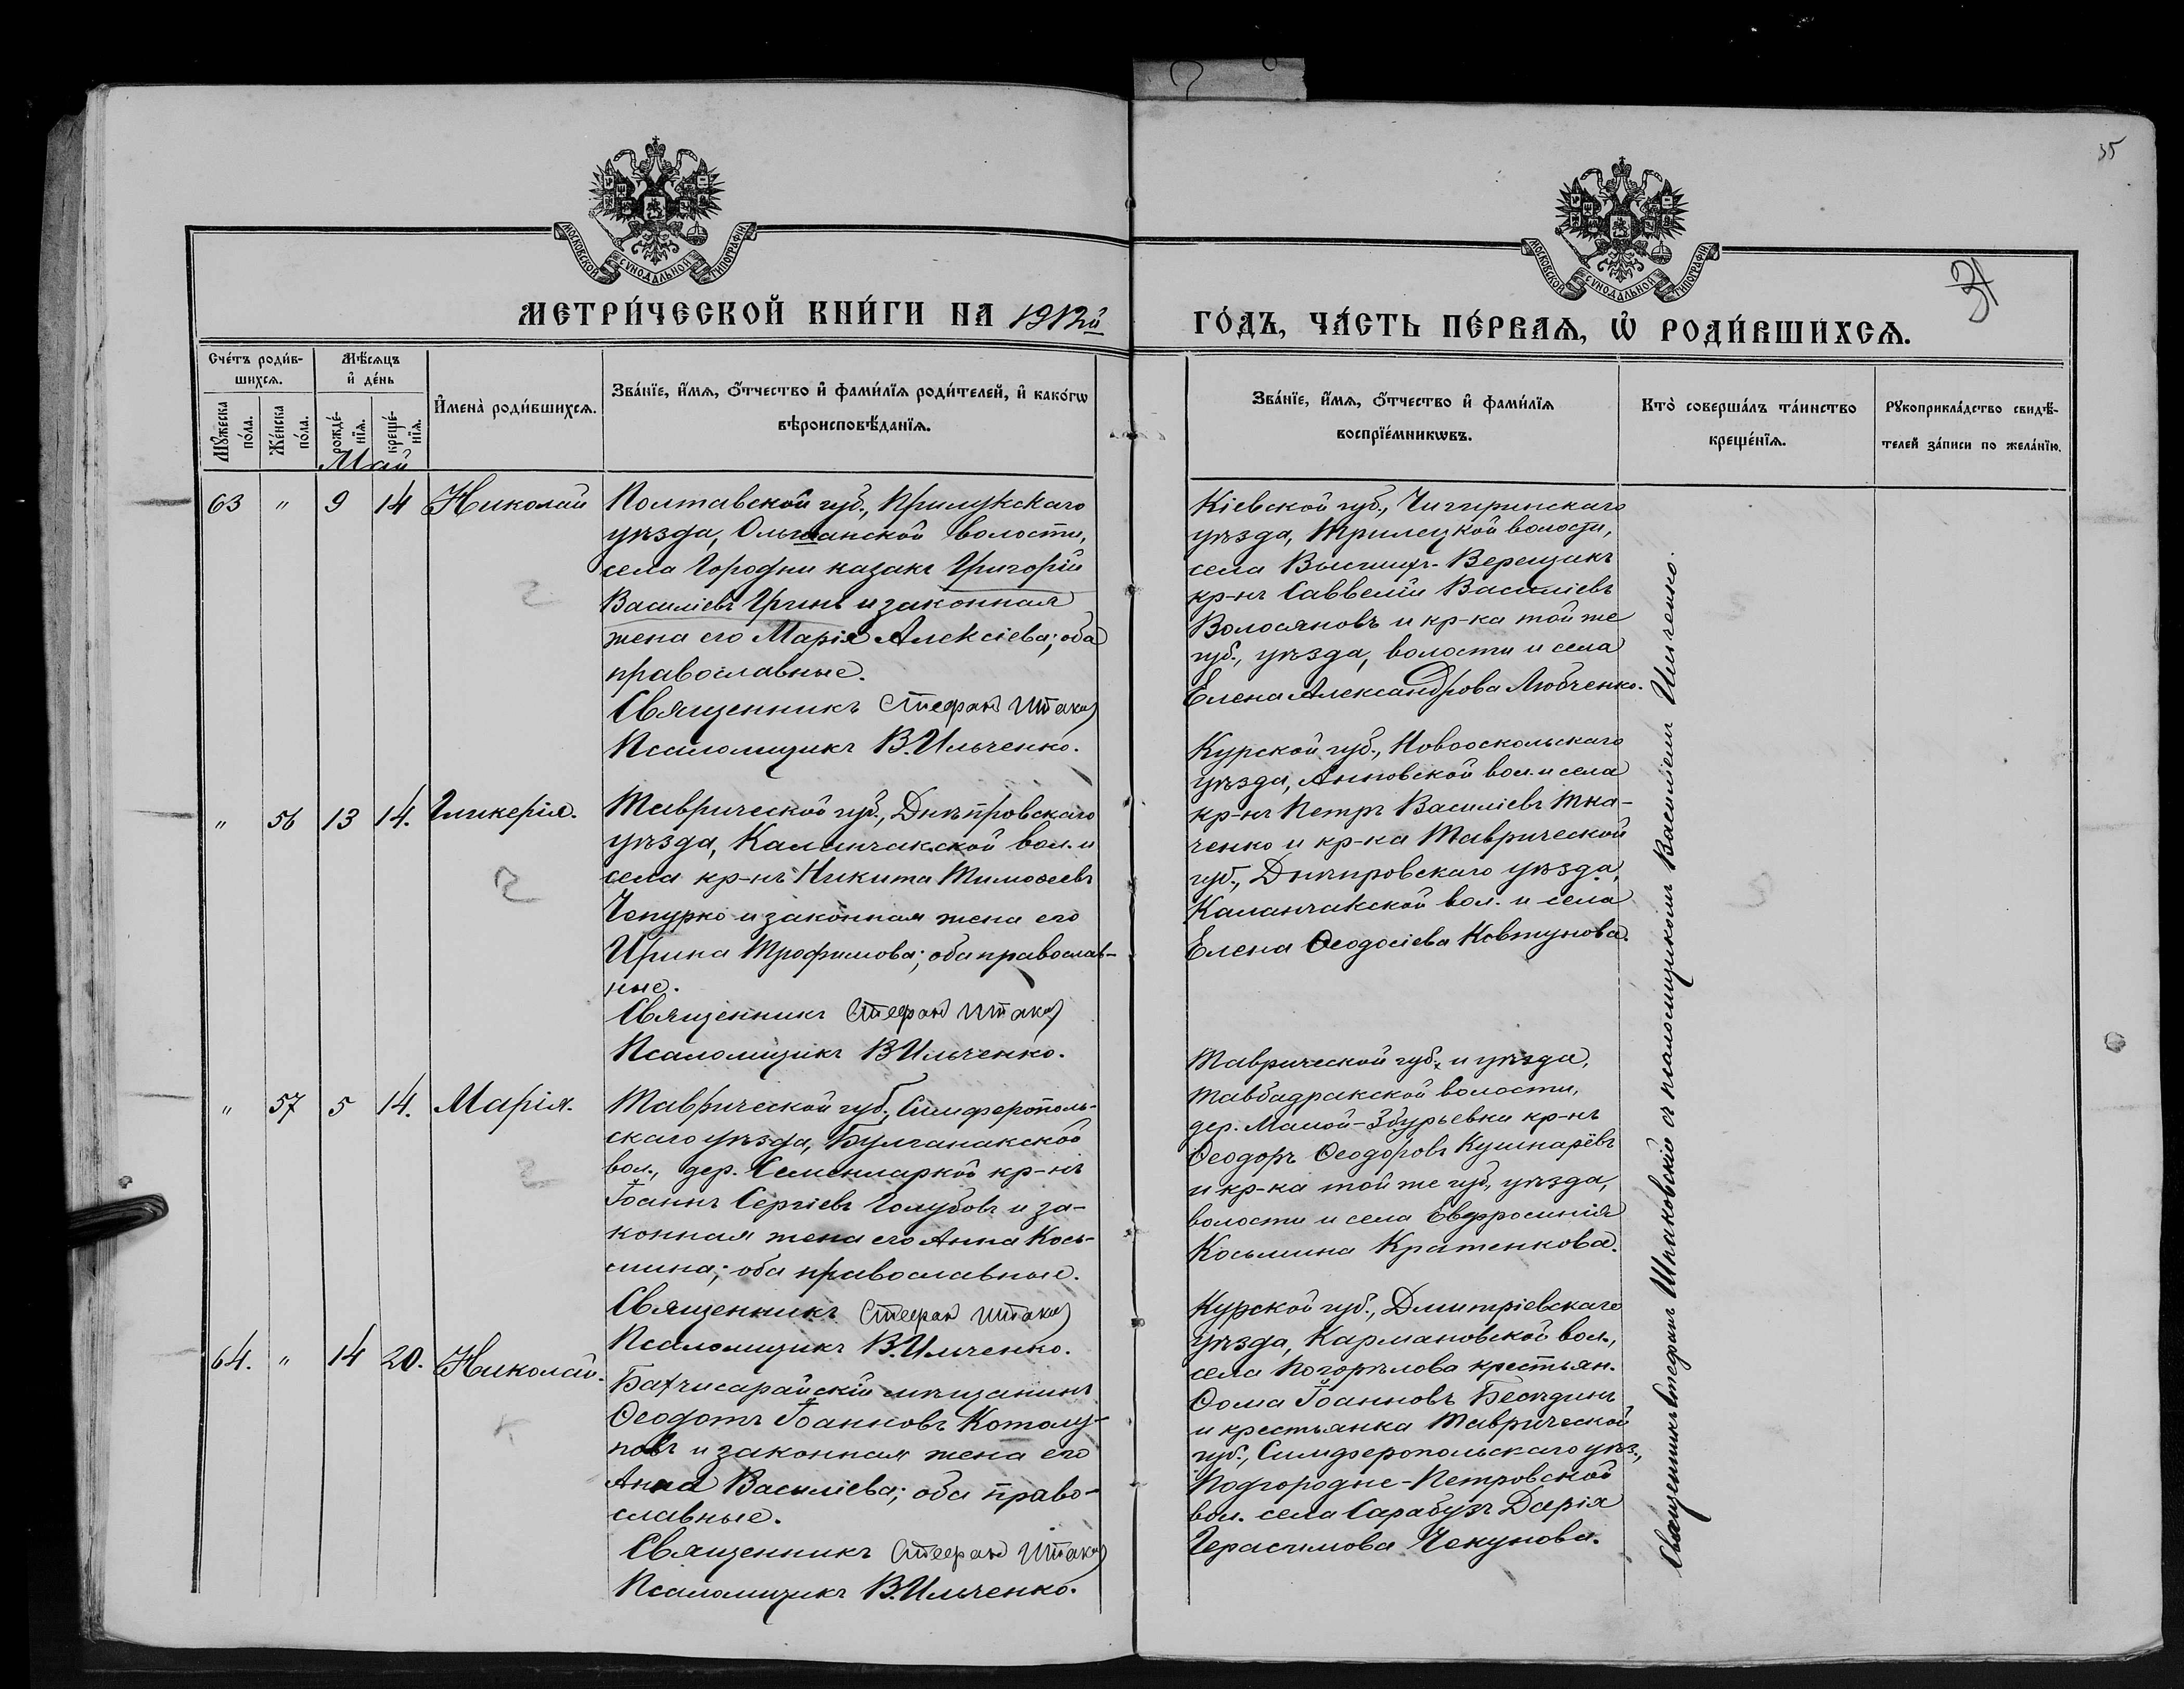 35
МОСКОВСКОЙ СѴНОДАЛЬНОЙ ТИПОГРАФІИ
МОСКОВСКОЙ СѴНОДАЛЬНОЙ ТИПОГРАФІИ
МЕТРИ́ЧЕСКОЙ КНИ́ГИ НА 1912й
ГО́ДЪ, ЧА́СТЬ ПЕ́РВАѦ, Ѡ҆ РОДИ́ВШИХСѦ.
Сче́тъ роди́в-
шихсѧ.
Мꙋ́жеска
по́ла.
Же́нска
по́ла.
Мѣ́сѧцъ
и҆ де́нь
рожде́-
нїѧ.
креще́-
нїѧ.
И҆мена̀ роди́вшихсѧ.
Зва́нїе, и҆́мѧ, ѻ҆́тчество и҆ фами́лїѧ роди́телей, и҆ како́гѡ
вѣроисповѣ́данїѧ.
Зва́нїе, и҆́мѧ, ѻ҆́тчество и҆ фами́лїѧ
воспрїе́мникѡвъ.
Кто̀ соверша́лъ та́инство
креще́нїѧ.
Рꙋкоприкла́дство свидѣ́-
телей за́писи по жела́нїю.
Май
63 " 9 14 Николай
Полтавской губ., Прилукскаго
уѣзда, Ольшанской волости,
села Городни казакъ Григорій
Василіевъ Гринь и законная
жена его Марія Алексіева; оба
православные.
Священникъ Стефан
Псаломщикъ В. Ильченко.
Кіевской губ., Чигиринскаго
уѣзда, Трилецкой волости,
села Вересщикъ
кр-нъ Савватій Василіевъ
Волосяновъ и кр-ка той же
губ., уѣзда, волости и села
Елена Александрова Любченко.
" 56 13 14. Гликерія.
Таврической губ., Днѣпровскаго
уѣзда, Каланчакской вол. и
села кр-нъ Никита Тимоѳеевъ
Чепурко и законная жена его
Ирина Трофимова; оба православ-
ные.
Священникъ Стефан
Псаломщикъ В Ильченко.
Курской губ., Новооскольскаго
уѣзда, Анновской вол. и села
кр-нъ Петръ Василіевъ Тка-
ченко и кр-ка Таврической
губ., Днѣпровскаго уѣзда,
Каланчакской вол. и села
Елена Ѳеодосіева Ковтунова.
" 57 5 14. Марія.
Таврической губ., Симферополь-
скаго уѣзда, Булганакской
вол., дер. кр-нъ
Іоаннъ Сергіевъ Голубовъ и за-
конная жена его Анна Кось-
мина; оба православные.
Священникъ Стефан
Псаломщикъ В. Ильченко.
Таврической губ. и уѣзда,
Тавбадракской волости,
дер. Малой-Збурьевки кр-нъ
Ѳеодоръ Ѳеодоровъ Кушнарёвъ
и кр-ка той же губ., уѣзда,
волости и села Евфросинія
Косьмина Кратенкова.
64. " 14 20. Николай.
Бахчисарайскій мѣщанинъ
Ѳеодотъ Іоанновъ Котолу-
повъ и законная жена его
Анна Василіева; оба право-
славные.
Священникъ Стефан
Псаломщикъ В. Ильченко.
Курской губ., Дмитріевскаго
уѣзда, Кармановской вол.,
села Погорѣлова крестьян.
Ѳома Іоанновъ Бесѣдинъ
и крестьянка Таврической
губ., Симферопольскаго уѣз.,
Подгородне-Петровской
вол. села Сарабузъ Дарія
Герасимова Чекунова.
Священникъ Стефанъ Шпаковскій съ псаломщикомъ Василіемъ Ильченко.